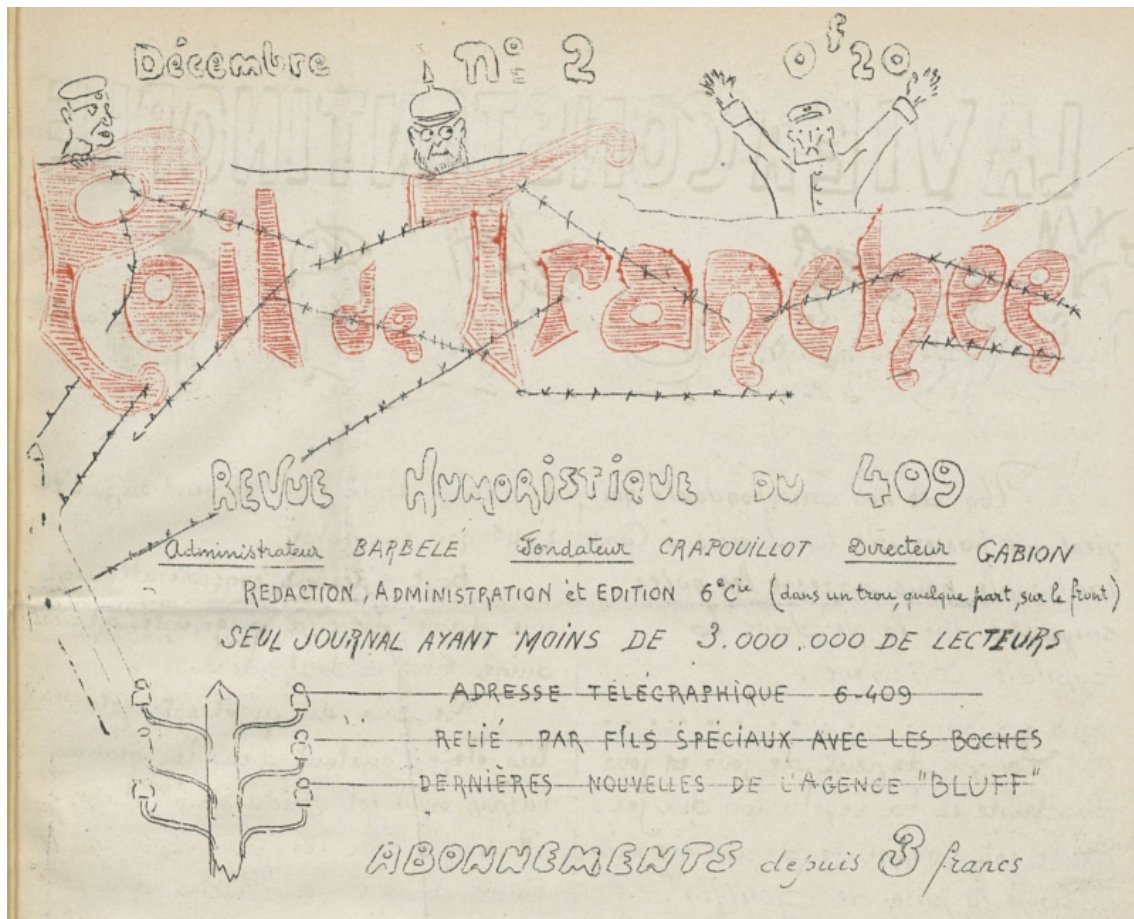 Décembre n° 2 0f20
Poil de Tranchée
REVUE HUMORISTIQUE DU 409
Administrateur BARBELÉ Fondateur CRAPOUILLOT Directeur GABION
REDACTION, ADMINISTRATION et EDITION 6e Cie (dans un trou, quelque part, sur le front)
SEUL JOURNAL AYANT MOINS DE 3.000.000 DE LECTEURS
ADRESSE TÉLÉGRAPHIQUE 6-409
RELIÉ PAR FILS SPÉCIAUX AVEC LES BOCHES
DERNIÈRES NOUVELLES DE L'AGENCE "BLUFF"
ABONNEMENTS depuis 3 francs